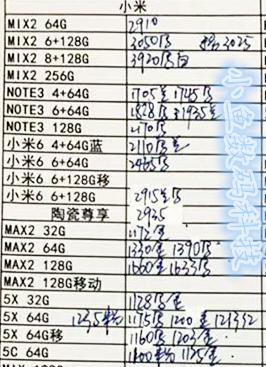 小米
MIX2 64G 2910
MIX2 6+128G 3050 3025
MIX2 8+128G 3920
MIX2 256G
NOTE3 4+64G 1705 1745
NOTE3 6+64G 1828 1935
NOTE3 128G 2170
小米6 4+64G蓝 2110
小米6 6+64G 2465
小米6 6+128G移
小米6 6+128G 2915
陶瓷尊享 2935
MAX2 32G 1172
MAX2 64G 1330 1390
MAX2 128G 1660 1633
MAX2 128G移动
5X 32G 1128
5X 64G 1235粉 1175 1200
5X 64G移 1160 1203
5C 64G 1125
小鱼数码科技